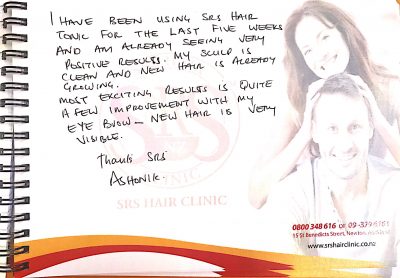 I HAVE BEEN USING SRS HAIR
TONIC FOR THE LAST FIVE WEEKS
AND AM ALREADY SEEING VERY
POSITIVE RESULTS. MY SCULP IS
CLEAN AND NEW HAIR IS ALREADY
GROWING.
MOST EXCITING RESULTS IS QUITE
A FEW IMPROVEMENT WITH MY
EYE BROW – NEW HAIR IS VERY
VISIBLE.
Thanks SRS
ASHONIK.
SRS
CLINIC
SRS HAIR CLINIC
0800 348 616 or 09
15 St Benedicts Street, Newton,
www.srshairclinic.co.nz